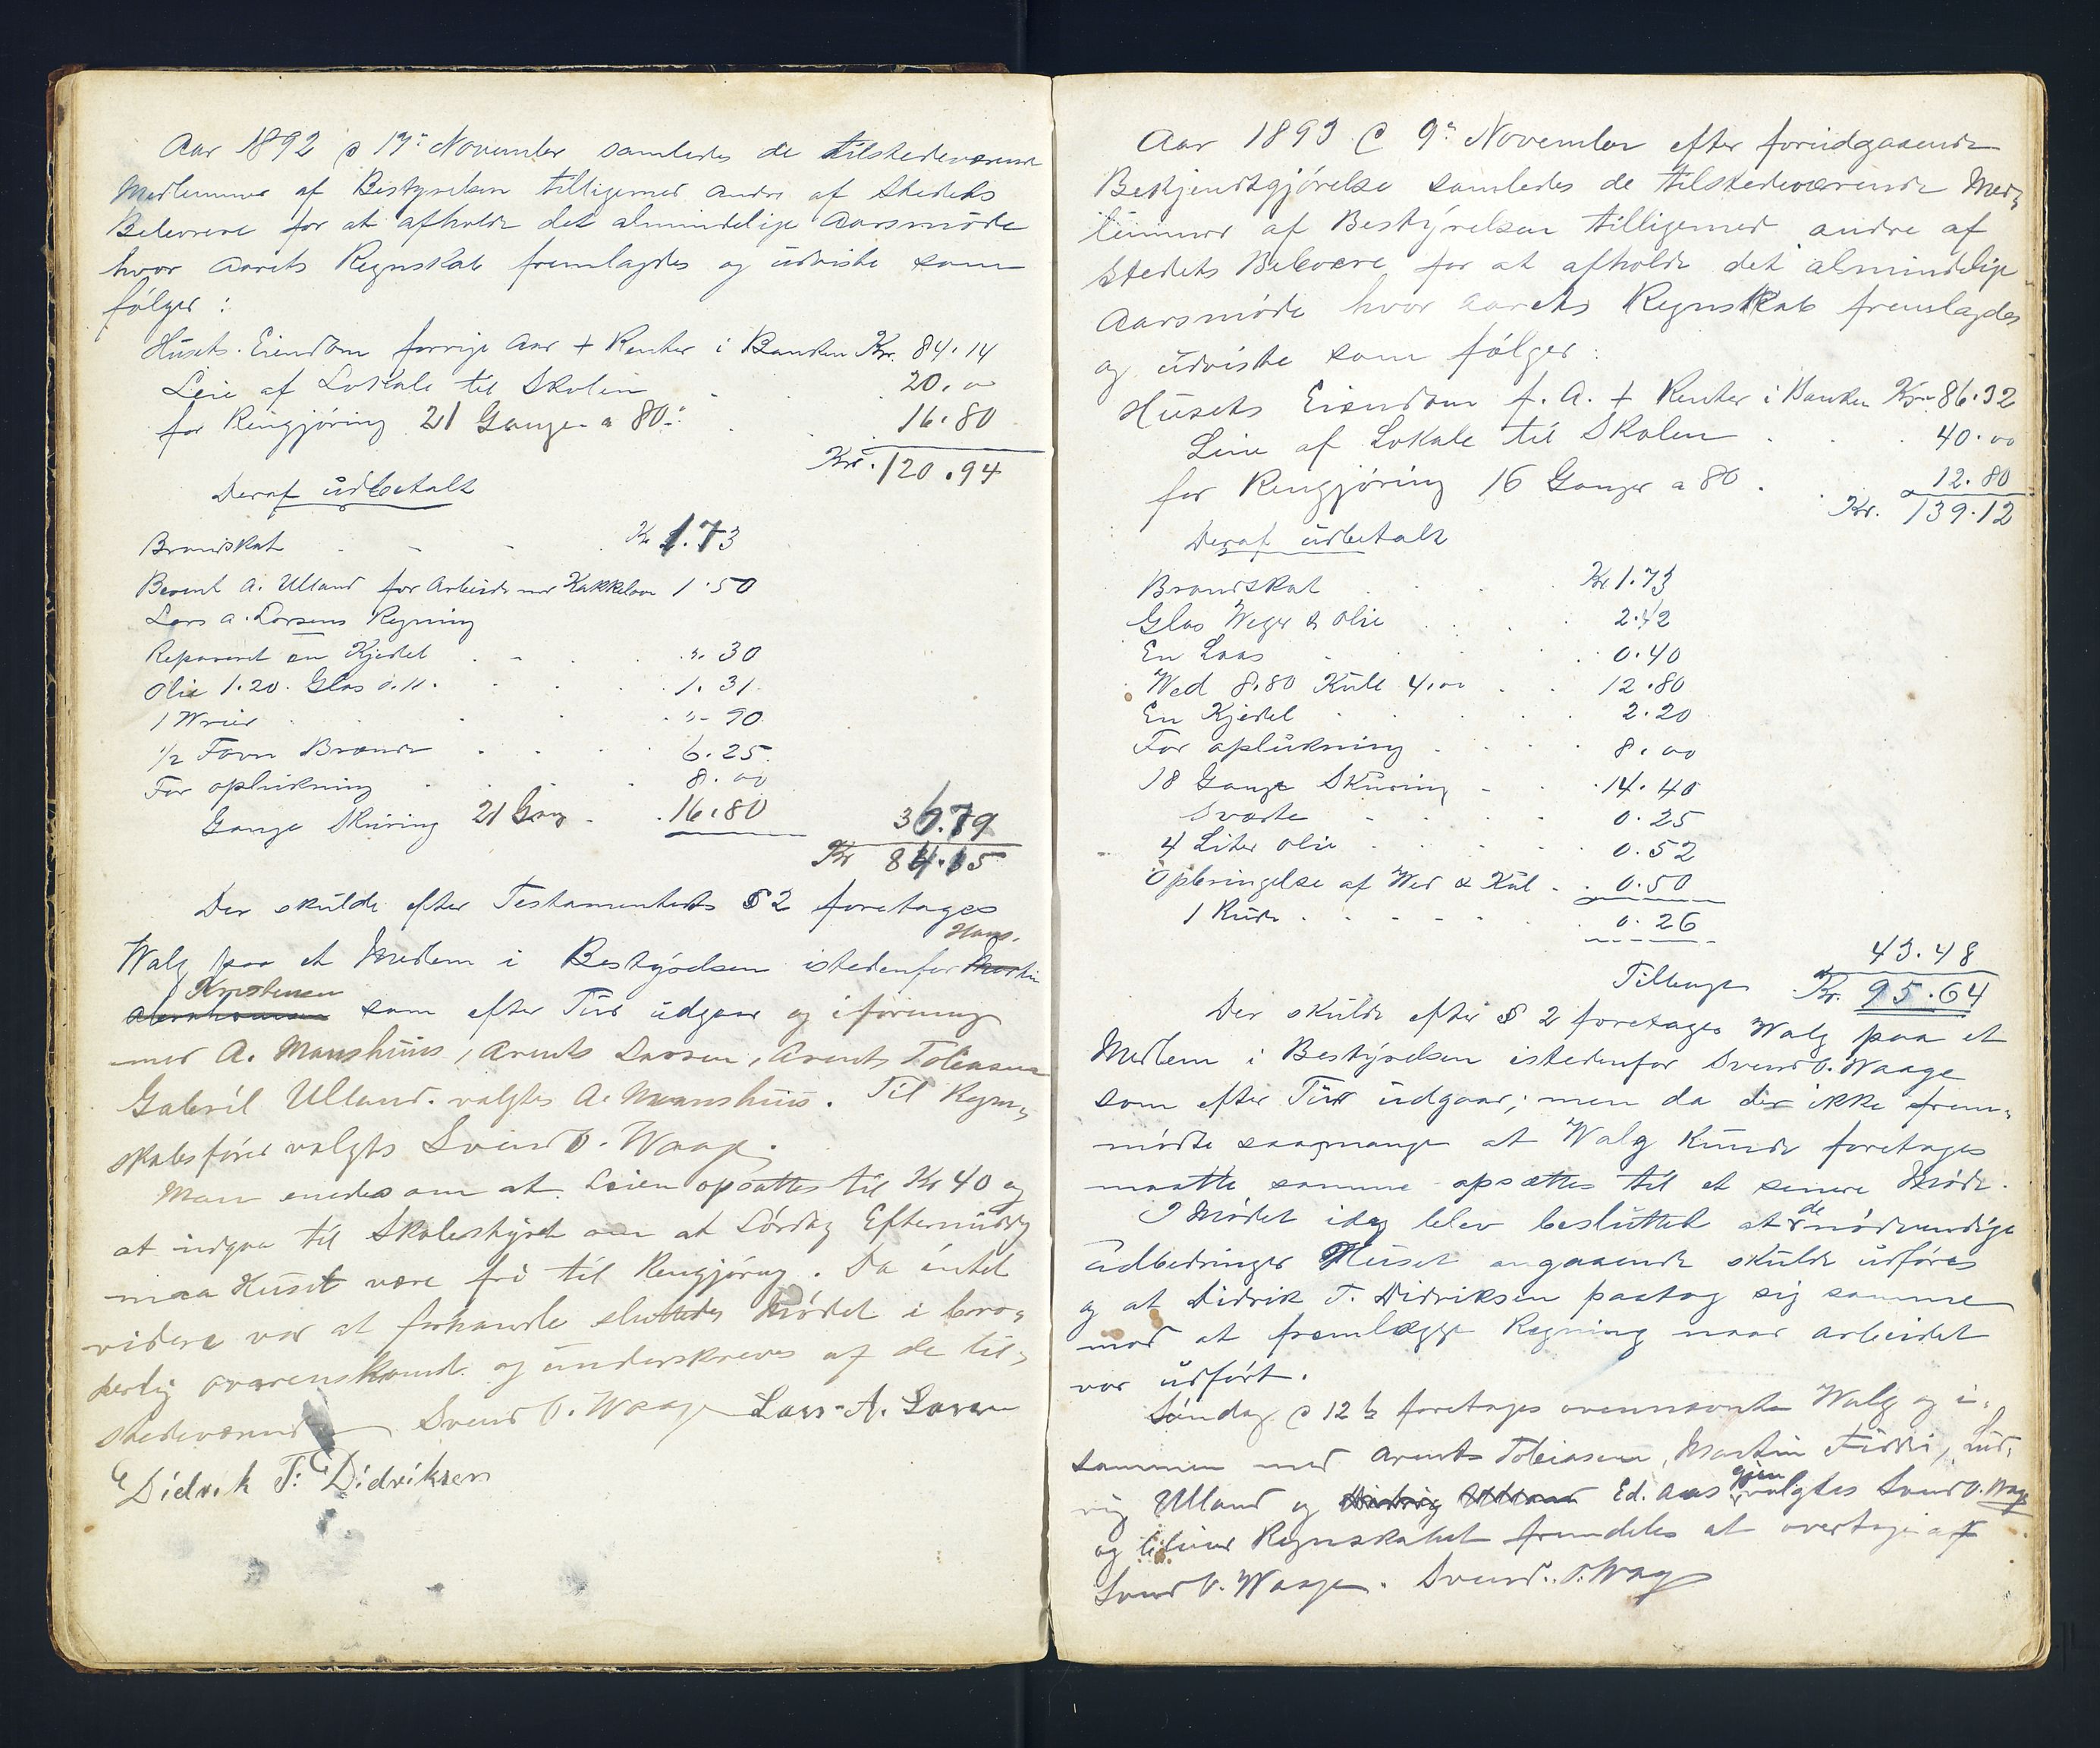 Aar 1892 d 17de November samledes de tilstedeværende
Medlemmer af Bestyrelsen tilligemed andre af Stedets
Beboere for at afholde det almindelige Aarsmøde
hvor Aarets Regnskab fremlagdes og udviste som
følger:
Husets Eiendom forrige Aar + Renter i Banken Kr. 84.14
Leie af Lokale til Skolen . . 20.00
for Rengjøring 21 Gange a 80 . . 16.80
Kr. 120.94
Deraf udbetalt
Brandskat . - - . Kr 1.73
Berent A. Ulland for Arbeide med Kakkelovn 1.50
Lars A. Larsens Regning
Repareret en Kjedel . - . . ". 30
Olie 1.20. Glas 0.11 . . . 1.31
1 . . . "- 90
1/2 Favn Brænde . . . 6.25
For oplukning . . . 8.00
Gange Skuring 21 Gang . . 16.80 36.79
Kr 84.15
Der skulde efter Testamentets § 2 foretages
Valg paa et Medlem i Bestyrelsen istedenfor Martin Hans
Abrahamsen Kristensen som efter Tur udgaar og iforening
med A. Manshuus, Arents Larsen, Arents Tobiasen
Gabriel Ulland valgtes A. Manshuus. Til Regn-
skabsfører valgtes Svend O. Waage.
Man enedes om at Leien opsattes til Kr 40 og
at indgaa til Skolestyret om at Lørdag Eftermiddag
maa Huset være fri til Rengjøring. Da intet
videre var at forhandle sluttedes Mødet i bro-
derlig overenskomst og underskreves af de til-
stedeværende Svend O. Waage Lars A. Larsen
Didrik T. Didriksen
Aar 1893 d 9de November efter forudgaaende
Bekjendtgjørelse samledes de tilstedeværende Med-
lemmer af Bestyrelsen tilligemed andre af
Stedets Beboere for at afholde det almindelige
Aarsmøde hvor aarets Regnskab fremlagdes
og udviste som følger:
Husets Eiendom f. A. + Renter i Banken Kr. 86.32
Leie af Lokale til Skolen . . . 40.00
for Rengjøring 16 Gange a 80 . . 12.80
Kr. 139.12
Deraf udbetalt
Brandskat . . . Kr 1.73
Glas Weger & Olie . . . . 2.42
En Laas . . . . 0.40
Wed 8.80 Kull 4.00 . . 12.80
En Kjedel . . . . 2.20
For oplukning . . . . 8.00
18 Gange Skuring - - . 14.40
Sværte . . . . 0.25
4 Liter olie . . . . 0.52
Opbringelse af Wed & Kul . . 0.50
1 Rude . . - - - . 0.26
43.48
Tilbage Kr. 95.64
Der skulde efter § 2 foretages Walg paa et
Medlem i Bestyrelsen istedenfor Svend O. Waage
som efter Tur udgaar; men da der ikke frem-
mødte saamange at Walg kunde foretages
maatte samme opsættes til et senere Møde.
I Mødet idag blev besluttet at de nødvendige
udbedringer Huset angaaende skulde udføres
og at Didrik T. Didriksen paatog sig samme
mod at fremlægge Regning naar arbeidet
var udført.
Søndag d 12te foretages ovennævnte Walg og i-
sammen med Arents Tobiasen, Martin Lud-
vig Ulland og Ludvig Ulland Ed. Aas gjenvalgtes Svend O. Waage
og bliver Regnskabet fremdeles at overtage af
Svend O. Waage. Svend O. Waage